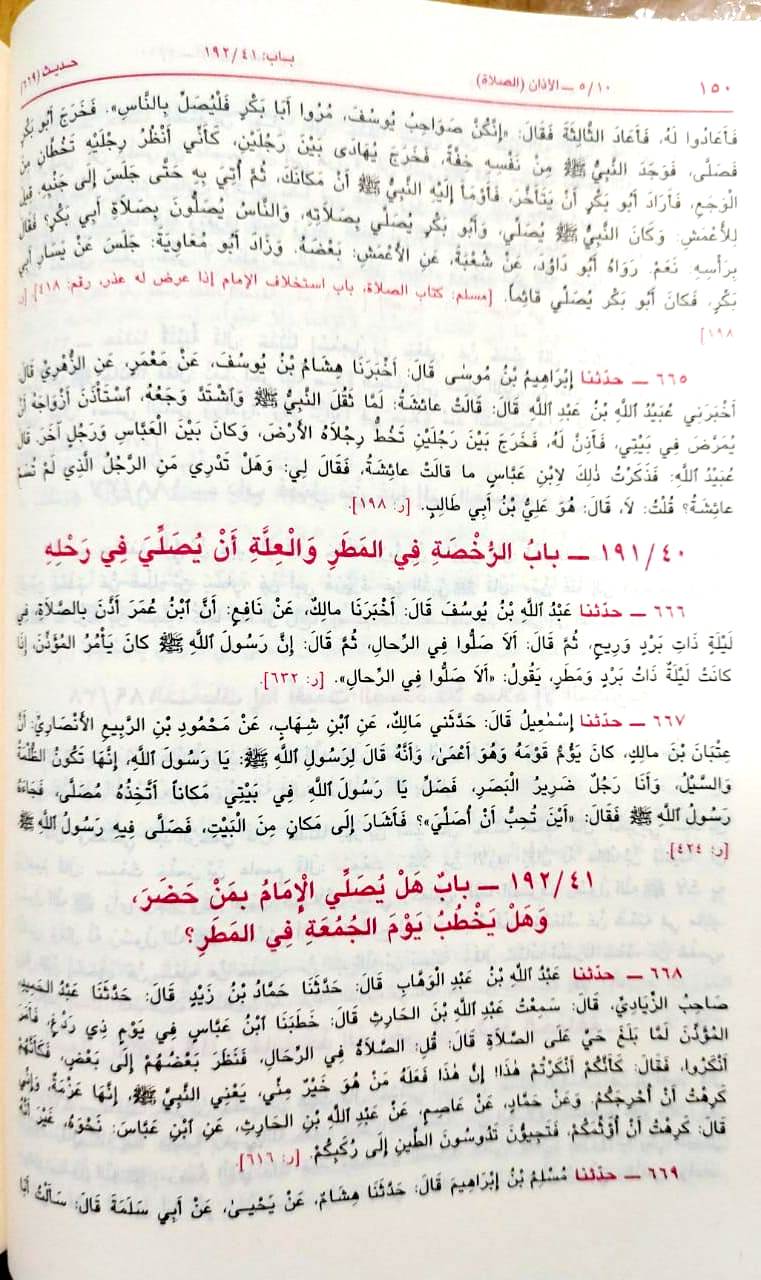 ١٥٠
٥/١٠ — الأذان (الصلاة)
بـاب: ١٩٢/٤١
حديث (٦٦٩)
فَأَعَادُوا لَهُ، فَأَعَادَ الثَّالِثَةَ فَقَالَ: «إِنَّكُنَّ صَوَاحِبُ يُوسُفَ، مُرُوا أَبَا بَكْرٍ فَلْيُصَلِّ بِالنَّاسِ». فَخَرَجَ أَبُو بَكْرٍ
فَصَلَّى، فَوَجَدَ النَّبِيُّ ﷺ مِنْ نَفْسِهِ خِفَّةً، فَخَرَجَ يُهَادَى بَيْنَ رَجُلَيْنِ، كَأَنِّي أَنْظُرُ رِجْلَيْهِ تَخُطَّانِ مِنَ
الْوَجَعِ، فَأَرَادَ أَبُو بَكْرٍ أَنْ يَتَأَخَّرَ، فَأَوْمَأَ إِلَيْهِ النَّبِيُّ ﷺ أَنْ مَكَانَكَ، ثُمَّ أُتِيَ بِهِ حَتَّى جَلَسَ إِلَى جَنْبِهِ. قِيلَ
لِلْأَعْمَشِ: وَكَانَ النَّبِيُّ ﷺ يُصَلِّي، وَأَبُو بَكْرٍ يُصَلِّي بِصَلَاتِهِ، وَالنَّاسُ يُصَلُّونَ بِصَلَاةِ أَبِي بَكْرٍ؟ فَقَالَ
بِرَأْسِهِ: نَعَمْ. رَوَاهُ أَبُو دَاوُدَ، عَنْ شُعْبَةَ، عَنِ الْأَعْمَشِ: بَعْضَهُ. وَزَادَ أَبُو مُعَاوِيَةَ: جَلَسَ عَنْ يَسَارِ أَبِي
بَكْرٍ، فَكانَ أَبُو بَكْرٍ يُصَلِّي قائِماً. [مسلم: كتاب الصلاة، باب استخلاف الإمام إذا عرض له عذر، رقم: ٤١٨]. [ر:
١٩٨]
٦٦٥ — حدّثنا إِبْرَاهِيمُ بْنُ مُوسَى قَالَ: أَخْبَرَنَا هِشَامُ بْنُ يُوسُفَ، عَنْ مَعْمَرٍ، عَنِ الزُّهْرِيِّ قَالَ
أَخْبَرَنِي عُبَيْدُ اللَّهِ بْنُ عَبْدِ اللَّهِ قَالَ: قَالَتْ عائِشَةُ: لَمَّا ثَقُلَ النَّبِيُّ ﷺ وَاشْتَدَّ وَجَعُهُ، اسْتَأْذَنَ أَزْوَاجَهُ أَنْ
يُمَرَّضَ فِي بَيْتِي، فَأَذِنَّ لَهُ، فَخَرَجَ بَيْنَ رَجُلَيْنِ تَخُطُّ رِجْلَاهُ الْأَرْضَ، وَكانَ بَيْنَ الْعَبَّاسِ وَرَجُلٍ آخَرَ. قَالَ
عُبَيْدُ اللَّهِ: فَذَكَرْتُ ذٰلِكَ لِابْنِ عَبَّاسٍ ما قالَتْ عائِشَةُ، فَقَالَ لِي: وَهَلْ تَدْرِي مَنِ الرَّجُلُ الَّذِي لَمْ تُسَمِّ
عائِشَةُ؟ قُلْتُ: لَا، قَالَ: هُوَ عَلِيُّ بْنُ أَبِي طَالِبٍ. [ر: ١٩٨].
١٩١/٤٠ — بابُ الرُّخْصَةِ فِي المَطَرِ وَالْعِلَّةِ أَنْ يُصَلِّيَ فِي رَحْلِهِ
٦٦٦ — حدّثنا عَبْدُ اللَّهِ بْنُ يُوسُفَ قَالَ: أَخْبَرَنَا مالكٌ، عَنْ نَافِعٍ: أَنَّ ابْنَ عُمَرَ أَذَّنَ بِالصَّلَاةِ، فِي
لَيْلَةٍ ذَاتِ بَرْدٍ وَرِيحٍ، ثُمَّ قَالَ: أَلَا صَلُّوا فِي الرِّحالِ، ثُمَّ قَالَ: إِنَّ رَسُولَ اللَّهِ ﷺ كانَ يَأْمُرُ المُؤَذِّنَ، إِذَا
كانَتْ لَيْلَةٌ ذَاتُ بَرْدٍ وَمَطَرٍ، يَقُولُ: «أَلَا صَلُّوا فِي الرِّحالِ». [ر: ٦٣٢].
٦٦٧ — حدّثنا إِسْمٰعِيلُ قَالَ: حَدَّثَنِي مَالِكٌ، عَنِ ابْنِ شِهَابٍ، عَنْ مَحْمُودِ بْنِ الرَّبِيعِ الْأَنْصَارِيِّ: أَنَّ
عِتْبَانَ بْنَ مالِكٍ، كانَ يَؤُمُّ قَوْمَهُ وَهُوَ أَعْمَىٰ، وَأَنَّهُ قَالَ لِرَسُولِ اللَّهِ ﷺ: يَا رَسُولَ اللَّهِ، إِنَّهَا تَكُونُ الظُّلْمَةُ
وَالسَّيْلُ، وَأَنَا رَجُلٌ ضَرِيرُ الْبَصَرِ، فَصَلِّ يَا رَسُولَ اللَّهِ فِي بَيْتِي مَكاناً أَتَّخِذُهُ مُصَلًّى، فَجَاءَهُ
رَسُولُ اللَّهِ ﷺ فَقَالَ: «أَيْنَ تُحِبُّ أَنْ أُصَلِّيَ»؟ فَأَشَارَ إِلَى مَكانٍ مِنَ الْبَيْتِ، فَصَلَّى فِيهِ رَسُولُ اللَّهِ ﷺ
[ر: ٤٢٤]
١٩٢/٤١ — بابٌ هَلْ يُصَلِّي الْإِمَامُ بِمَنْ حَضَرَ،
وَهَلْ يَخْطُبُ يَوْمَ الجُمُعَةِ فِي المَطَرِ؟
٦٦٨ — حدّثنا عَبْدُ اللَّهِ بْنُ عَبْدِ الْوَهَّابِ قَالَ: حَدَّثَنَا حَمَّادُ بْنُ زَيْدٍ قَالَ: حَدَّثَنَا عَبْدُ الحَمِيدِ
صَاحِبُ الزِّيَادِيِّ، قَالَ: سَمِعْتُ عَبْدَ اللَّهِ بْنَ الحَارِثِ قَالَ: خَطَبَنَا ابْنُ عَبَّاسٍ فِي يَوْمٍ ذِي رَدْغٍ، فَأَمَرَ
المُؤَذِّنَ لَمَّا بَلَغَ حَيَّ عَلَى الصَّلَاةِ قَالَ: قُلِ: الصَّلَاةُ فِي الرِّحالِ، فَنَظَرَ بَعْضُهُمْ إِلَى بَعْضٍ، فَكَأَنَّهُمْ
أَنْكَرُوا، فَقَالَ: كَأَنَّكُمْ أَنْكَرْتُمْ هٰذَا! إِنَّ هٰذَا فَعَلَهُ مَنْ هُوَ خَيْرٌ مِنِّي، يَعْنِي النَّبِيَّ ﷺ، إِنَّهَا عَزْمَةٌ، وَإِنِّي
كَرِهْتُ أَنْ أُحْرِجَكُمْ. وَعَنْ حَمَّادٍ، عَنْ عاصِمٍ، عَنْ عَبْدِ اللَّهِ بْنِ الحَارِثِ، عَنِ ابْنِ عَبَّاسٍ: نَحْوَهُ، غَيْرَ أَنَّهُ
قَالَ: كَرِهْتُ أَنْ أُؤَثِّمَكُمْ، فَتَجِيؤُنَ تَدُوسُونَ الطِّينَ إِلَى رُكَبِكُمْ. [ر: ٦١٦].
٦٦٩ — حدّثنا مُسْلِمُ بْنُ إِبْرَاهِيمَ قَالَ: حَدَّثَنَا هِشَامٌ، عَنْ يَحْيىٰ، عَنْ أَبِي سَلَمَةَ قَالَ: سَأَلْتُ أَبَا